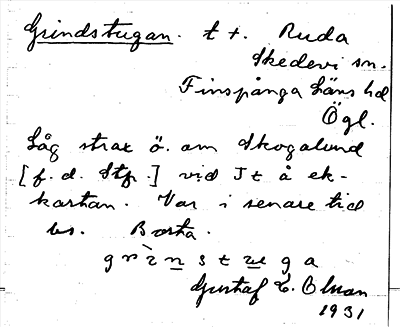 Grindstugan. t +. Ruda
Skedevi sn.
Finspånga läns hd
Ögl.
Låg strax ö. om Skogalund
[f. d. Stp.] vid It å ek-
kartan. Var i senare tid
bs. Borta.
grìnstuga
Gustaf E. Olsson
1931